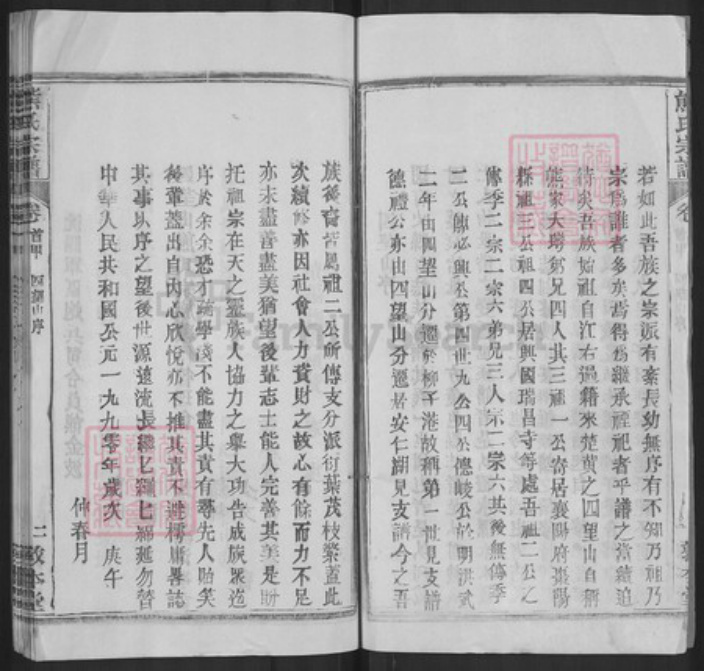 熊氏宗譜
卷
若如此吾族之宗派有紊長幼無序有不知乃祖乃
宗爲誰者多矣焉得爲繼承禋祀者乎譜之當續迫
待矣吾族始祖自江右過籍來楚黄之四望山自稱
熊家大塆弟兄四人其三祖一公寄居襄陽府棗陽
縣祖三公祖四公居興國瑞昌寺等處吾祖二公之
傳季二宗二宗六弟兄三人宗二宗六其後無傳季
二公傳必興公第四世九公四公德峻公於明洪武
二年由四望山分遷於柳子港故稱第一世見支譜
德禮公亦由四望山分遷居安仁湖見支譜今之吾
族後裔皆屬祖二公所傳支分派衍葉茂枝繁蓋此
次續修亦因社會人力資財之故心有餘而力不足
亦未盡善盡美猶望後輩志士能人完善其美是盼
托祖宗在天之靈族人協力之舉大功告成族衆迄
序於余余恐才疏學淺不能盡其責有辱先人貽笑
後輩蓋出自内心欣悅亦不推其責不避樗庸畧誌
其事以序之望後世源遠流長繼七繩七綿延勿替
中華人民共和國公元一九九零年歲次 庚午
仲春月
熊氏宗譜
卷首甲 四望山序
二 敦本堂
FamilySearch